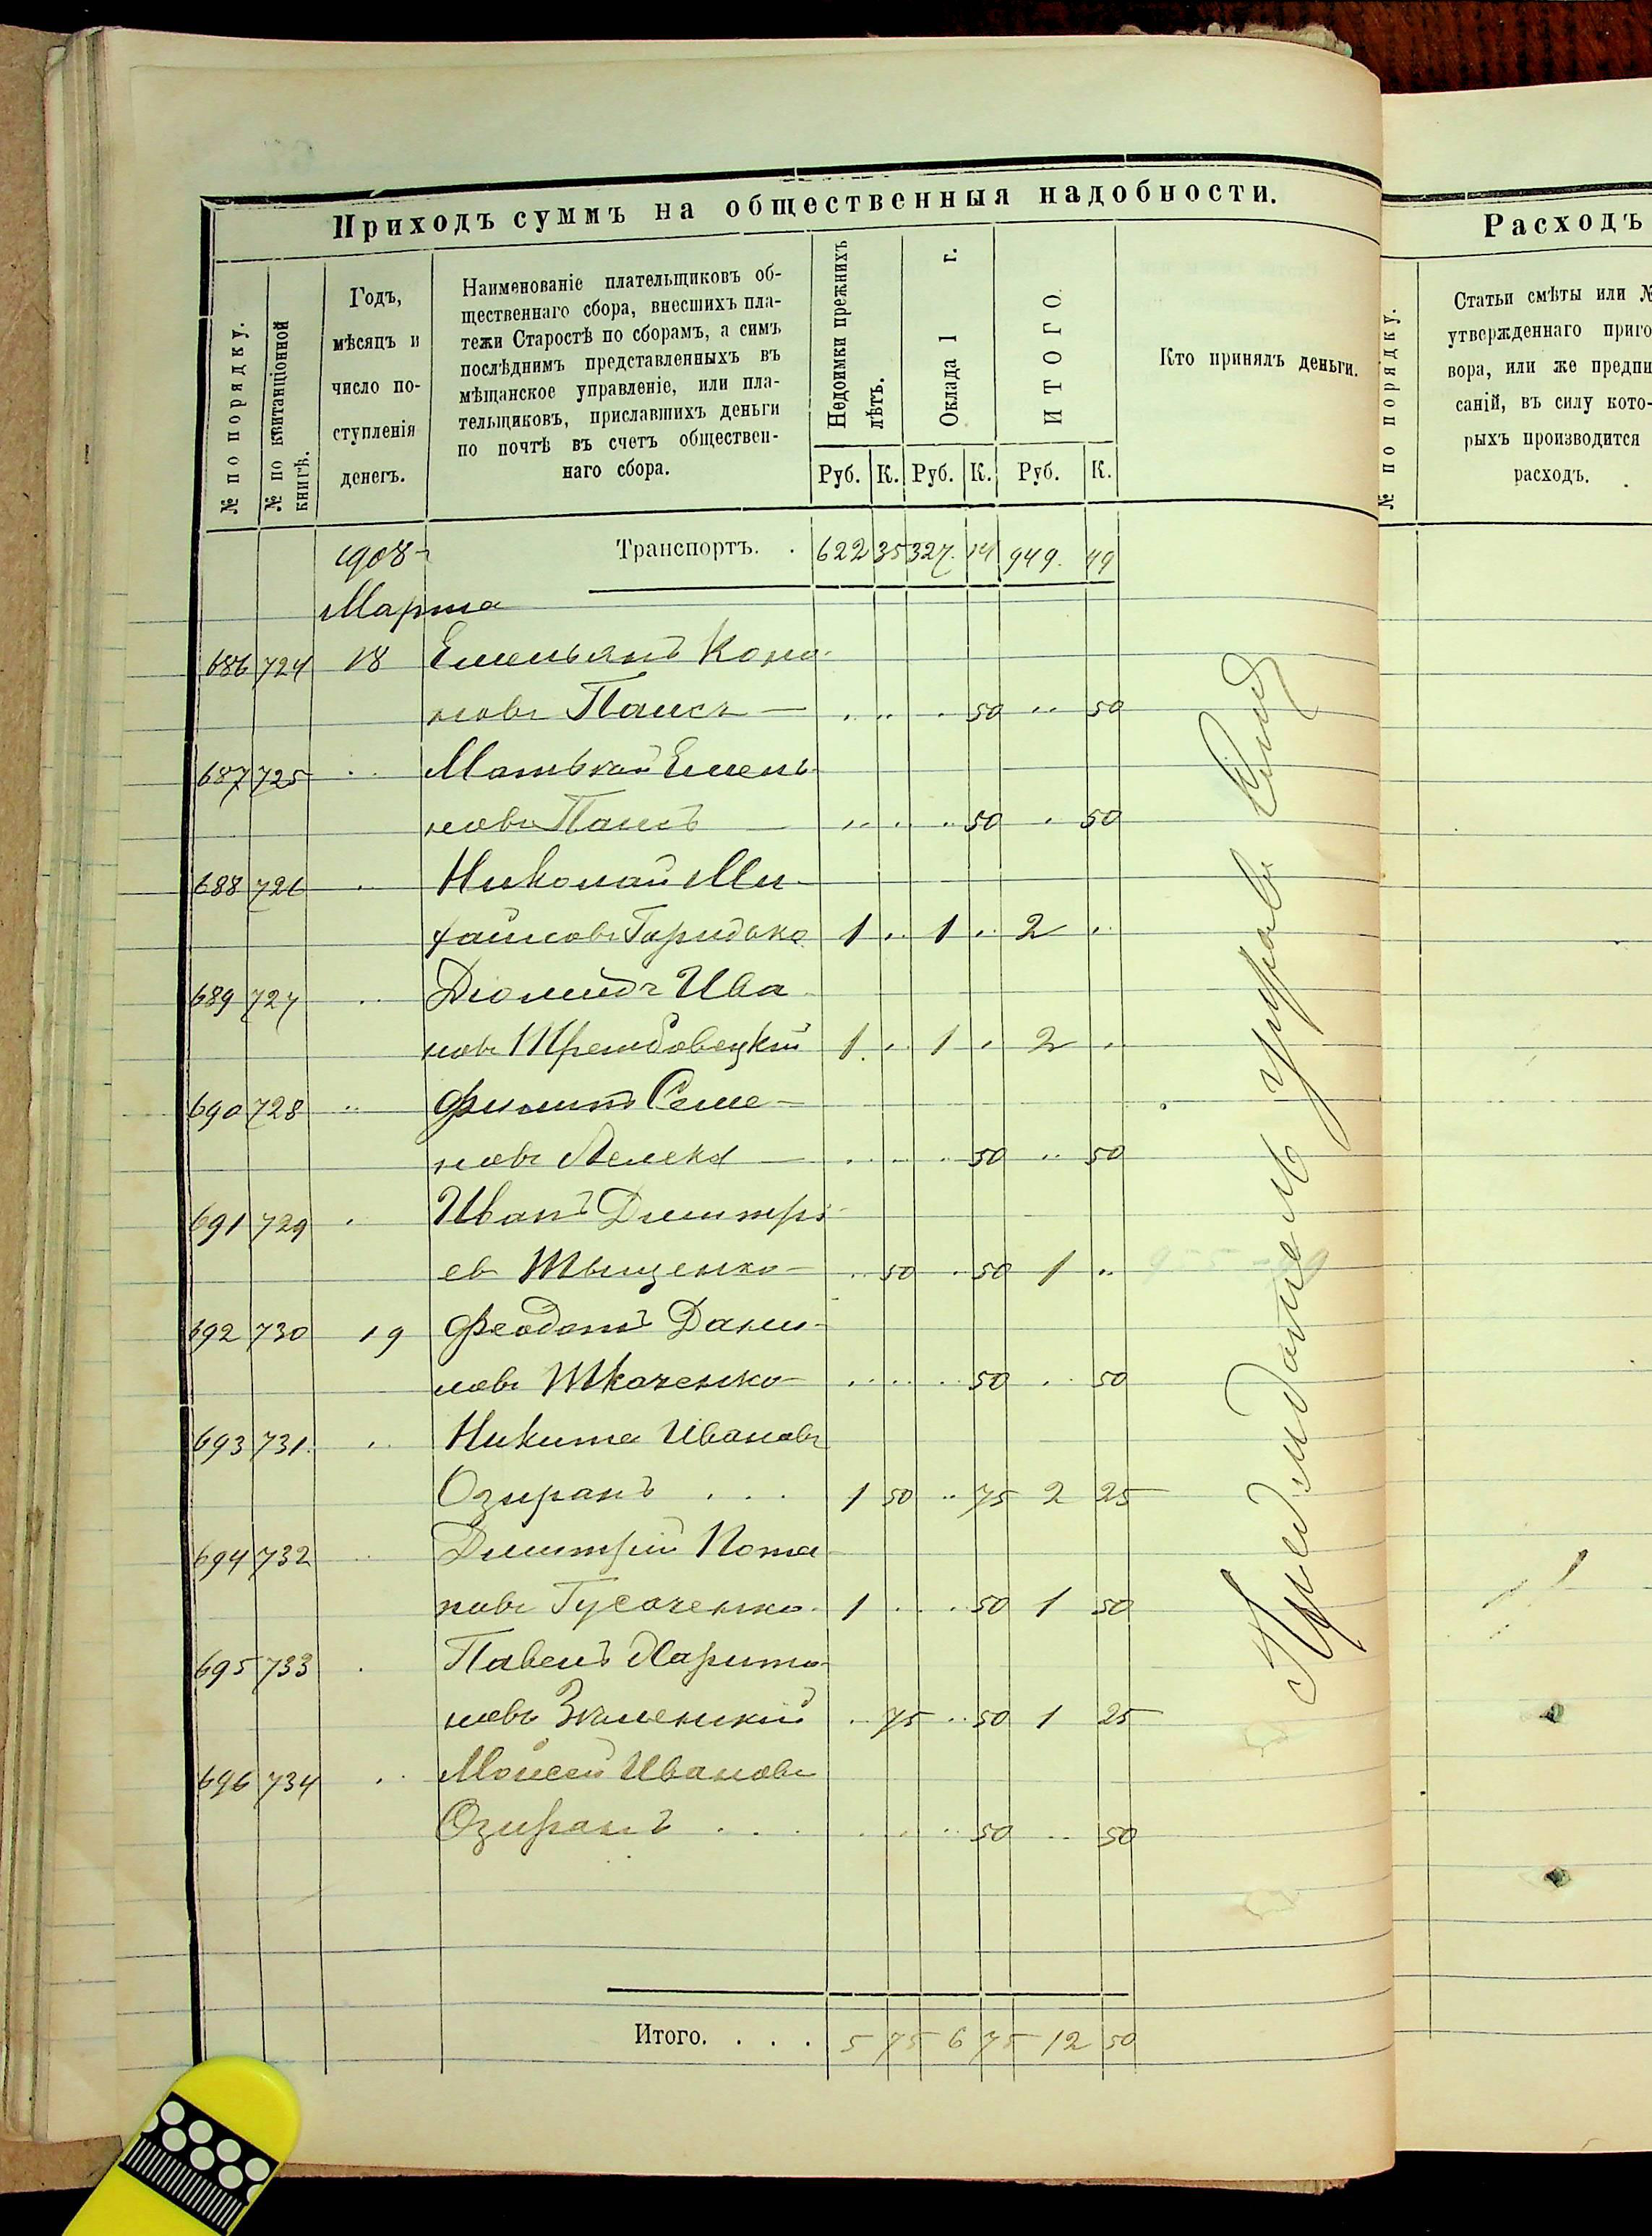 Приходъ суммъ на общественныя надобности.
№ по порядку.
№ по квитанціонной книгѣ.
Годъ,
мѣсяцъ и
число по-
ступленія
денегъ.
Наименованіе плательщиковъ об-
щественнаго сбора, внесшихъ пла-
тежи Старостѣ по сборамъ, а симъ
послѣднимъ представленныхъ въ
мѣщанское управленіе, или пла-
тельщиковъ, приславшихъ деньги
по почтѣ въ счетъ обществен-
наго сбора.
Недоимки прежнихъ лѣтъ.
Оклада 1 г.
ИТОГО.
Руб. К. Руб. К. Руб. К.
Кто принялъ деньги.
1908 Транспортъ. . 622 35 327 14 949 49
Марта
686 724 18 Емельянъ Коно-
новъ Паисъ — 50 50
687 725 Емель-
новъ Паисъ — 50 50
688 726 Николай Ми-
хайловъ 1 1 2
689 727 Діомидъ Ива-
новъ 1 1 2
690 728 Филипъ Семе-
новъ Лелека — 50 50
691 729 Иванъ Дмитрі-
евъ Тыщенко — 50 50 1
692 730 19 Феодотъ Дани-
ловъ Ткаченко — 50 50
693 731 Никита Ивановъ
Озиранъ . . . 1 50 75 2 25
694 732 Дмитрій Пота-
повъ Гусаченко 1 50 1 50
695 733 Павелъ Харито-
новъ Знаменскій 75 50 1 25
696 734 Моисей Ивановъ
Озиранъ . . . 50 50
Итого. . . . 5 75 6 75 12 50
Расходъ
№ по порядку.
Статьи смѣты или №
утвержденнаго приго-
вора, или же предпи-
саній, въ силу кото-
рыхъ производится
расходъ.